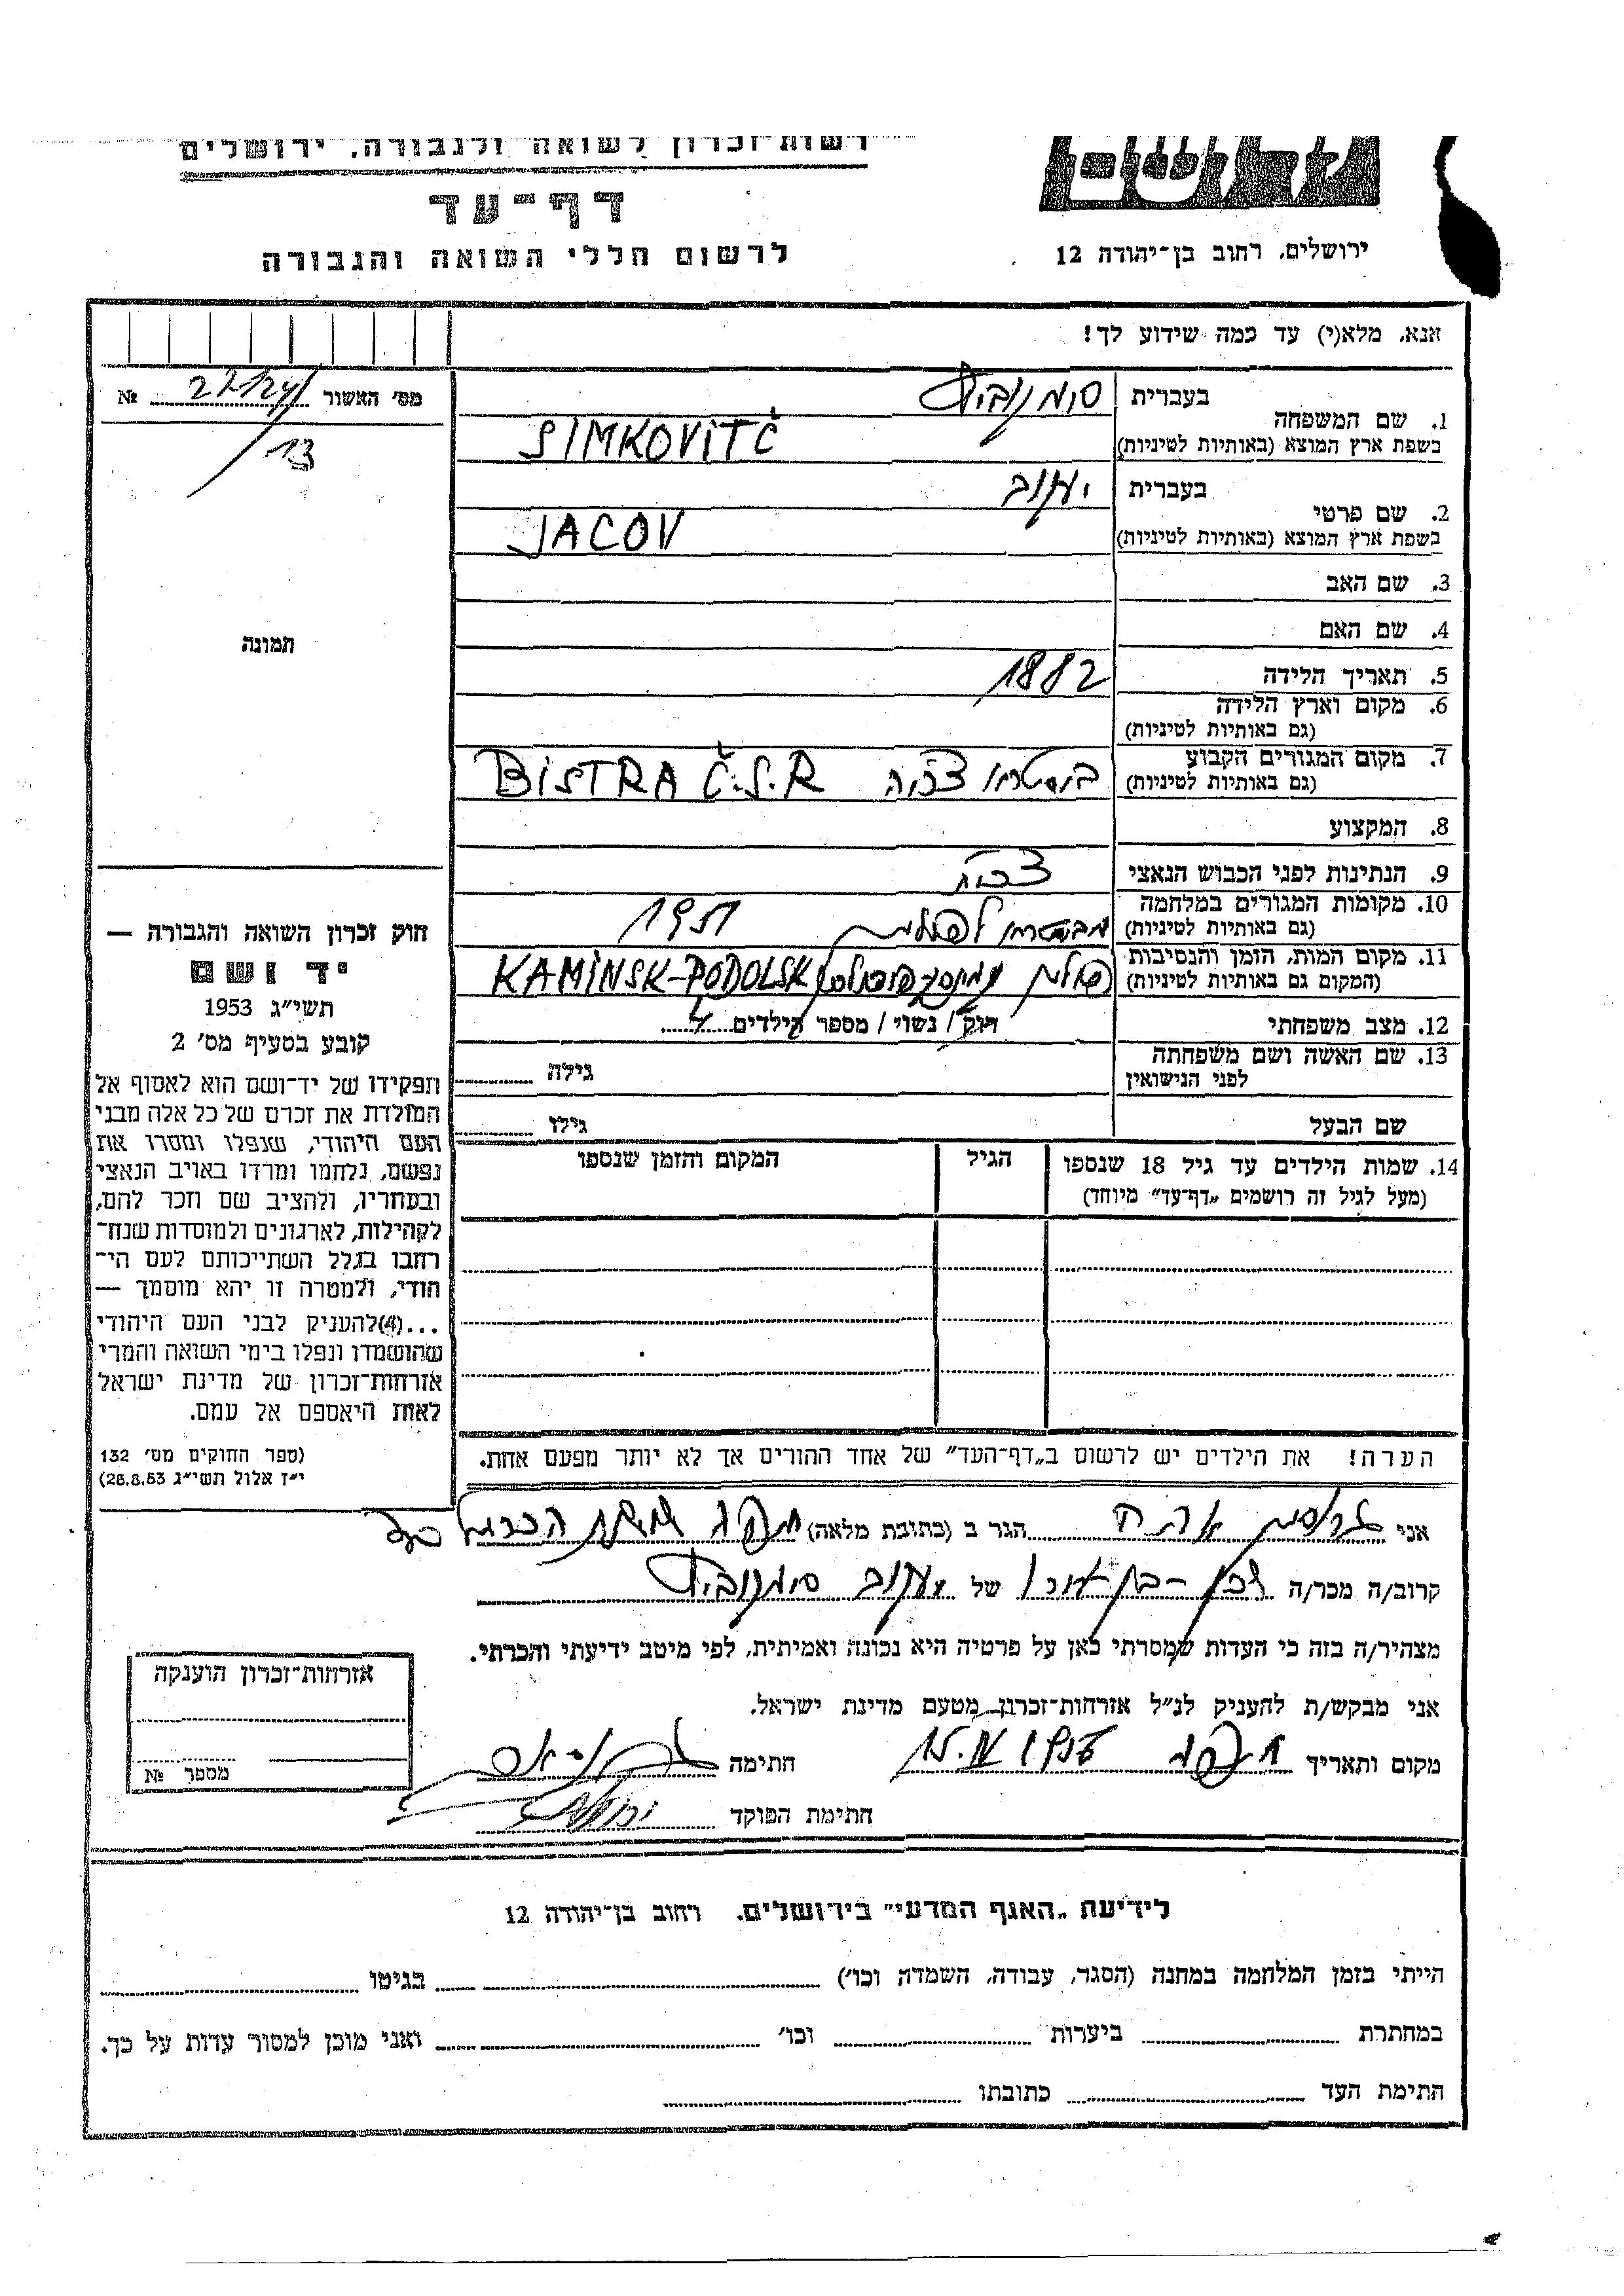 רשות זכרון לשואה ולגבורה, ירושלים
דף-עד
לרשום חללי השואה והגבורה
ירושלים, רחוב בן-יהודה 12
אנא, מלא(י) עד כמה שידוע לך!
מס׳ האשור № 27124/
13
תמונה
1. שם המשפחה בעברית סימקוביץ
בשפת ארץ המוצא (באותיות לטיניות) SIMKOVITČ
2. שם פרטי בעברית יעקוב
בשפת ארץ המוצא (באותיות לטיניות) JACOV
3. שם האב
4. שם האם
5. תאריך הלידה 1882
6. מקום וארץ הלידה
(גם באותיות לטיניות)
7. מקום המגורים הקבוע
(גם באותיות לטיניות) ביסטרא צ׳כיה BISTRA Č.S.R
8. המקצוע
9. הנתינות לפני הכבוש הנאצי צ׳כית
10. מקומות המגורים במלחמה
(גם באותיות לטיניות)
11. מקום המות, הזמן והנסיבות
(המקום גם באותיות לטיניות) פולין KAMINSK-PODOLSK
12. מצב משפחתי רוק / נשוי / מספר הילדים
13. שם האשה ושם משפחתה
לפני הנישואין גילה
שם הבעל גילו
14. שמות הילדים עד גיל 18 שנספו הגיל המקום והזמן שנספו
(מעל לגיל זה רושמים „דף-עד״ מיוחד)
הערה! את הילדים יש לרשום ב„דף-העד״ של אחד ההורים אך לא יותר מפעם אחת.
חוק זכרון השואה והגבורה —
יד ושם
תשי״ג 1953
קובע בסעיף מס׳ 2
תפקידו של יד-ושם הוא לאסוף אל
המולדת את זכרם של כל אלה מבני
העם היהודי, שנפלו ומסרו את
נפשם, נלחמו ומרדו באויב הנאצי
ובעוזריו, ולהציב שם וזכר להם,
לקהילות, לארגונים ולמוסדות שנח-
רבו בגלל השתייכותם לעם הי-
הודי, ולמטרה זו יהא מוסמך —
...(4) להעניק לבני העם היהודי
שהושמדו ונפלו בימי השואה והמרי
אזרחות-זכרון של מדינת ישראל
לאות היאספם אל עמם.
(ספר החוקים מס׳ 132
י״ז אלול תשי״ג 28.8.53)
אני הגר ב (כתובת מלאה)
קרוב/ה מכר/ה של יעקוב סימקוביץ
מצהיר/ה בזה כי העדות שמסרתי כאן על פרטיה היא נכונה ואמיתית, לפי מיטב ידיעתי והכרתי.
אני מבקש/ת להעניק לנ״ל אזרחות-זכרון מטעם מדינת ישראל.
מקום ותאריך חתימה
חתימת הפוקד
אזרחות-זכרון הוענקה
מספר №
לידיעת „האגף המדעי״ בירושלים, רחוב בן-יהודה 12
הייתי בזמן המלחמה במחנה (הסגר, עבודה, השמדה וכו׳) בגיטו
במחתרת ביערות וכו׳ ואני מוכן למסור עדות על כך.
חתימת העד כתובתו